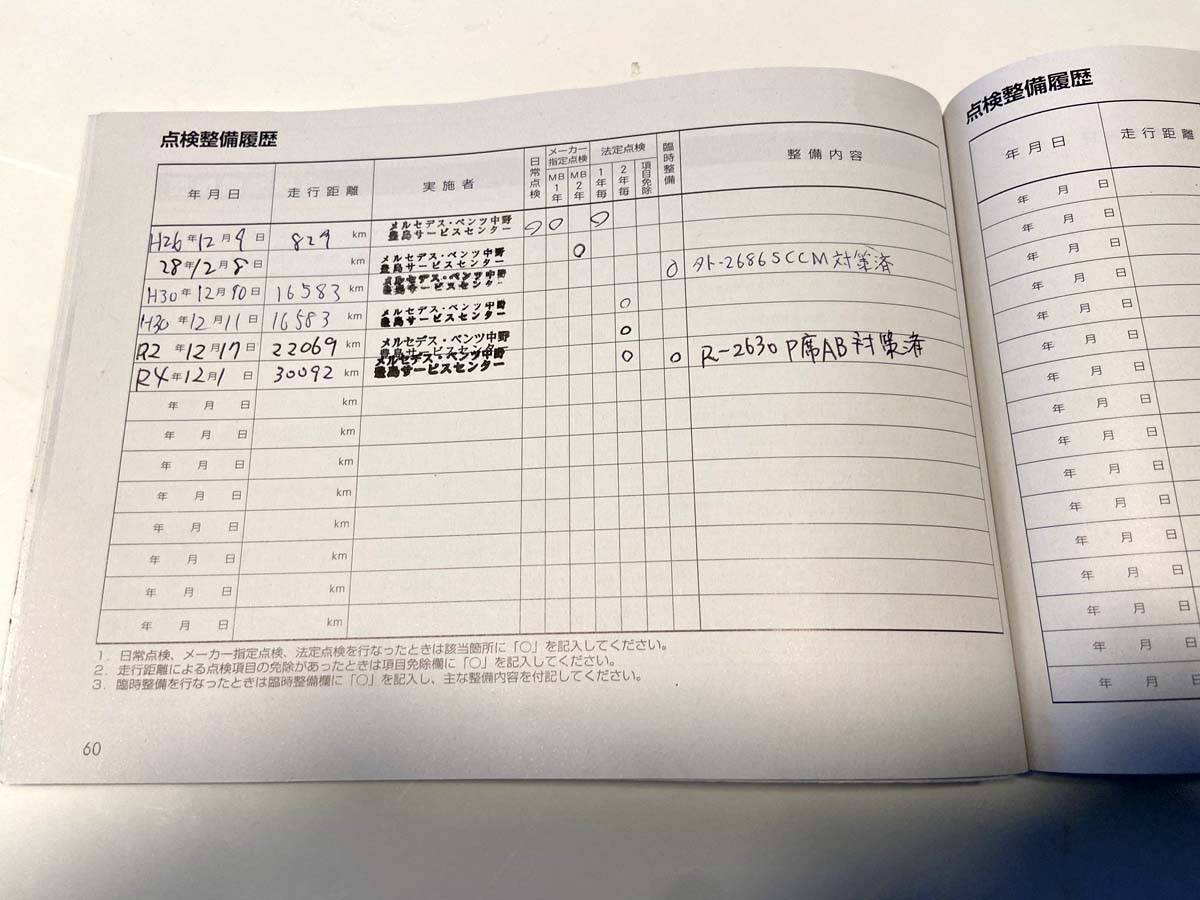 点検整備履歴
年月日 走行距離 実施者 日常点検 メーカー指定点検 MB1年 MB2年 法定点検 1年毎 2年毎 項目免除 臨時整備 整備内容
H26年12月9日 829 km メルセデス・ベンツ中野 豊島サービスセンター ○ ○ ○
28年12月8日 km メルセデス・ベンツ中野 豊島サービスセンター ○
H30年12月10日 16583 km メルセデス・ベンツ中野 豊島サービスセンター ○ 外-2686SCCM対策済
H30年12月11日 16583 km メルセデス・ベンツ中野 豊島サービスセンター ○
R2年12月17日 22069 km メルセデス・ベンツ中野 豊島サービスセンター ○
R4年12月1日 30092 km メルセデス・ベンツ中野 豊島サービスセンター ○ ○ R-2630 P席AB対策済
年 月 日 km
年 月 日 km
年 月 日 km
年 月 日 km
年 月 日 km
年 月 日 km
年 月 日 km
年 月 日 km
1. 日常点検、メーカー指定点検、法定点検を行なったときは該当箇所に「○」を記入してください。
2. 走行距離による点検項目の免除があったときは項目免除欄に「○」を記入してください。
3. 臨時整備を行なったときは臨時整備欄に「○」を記入し、主な整備内容を付記してください。
60
点検整備履歴
年月日 走行距離
年 月 日
年 月 日
年 月 日
年 月 日
年 月 日
年 月 日
年 月 日
年 月 日
年 月 日
年 月 日
年 月 日
年 月 日
年 月 日
年 月 日
年 月 日
年 月 日